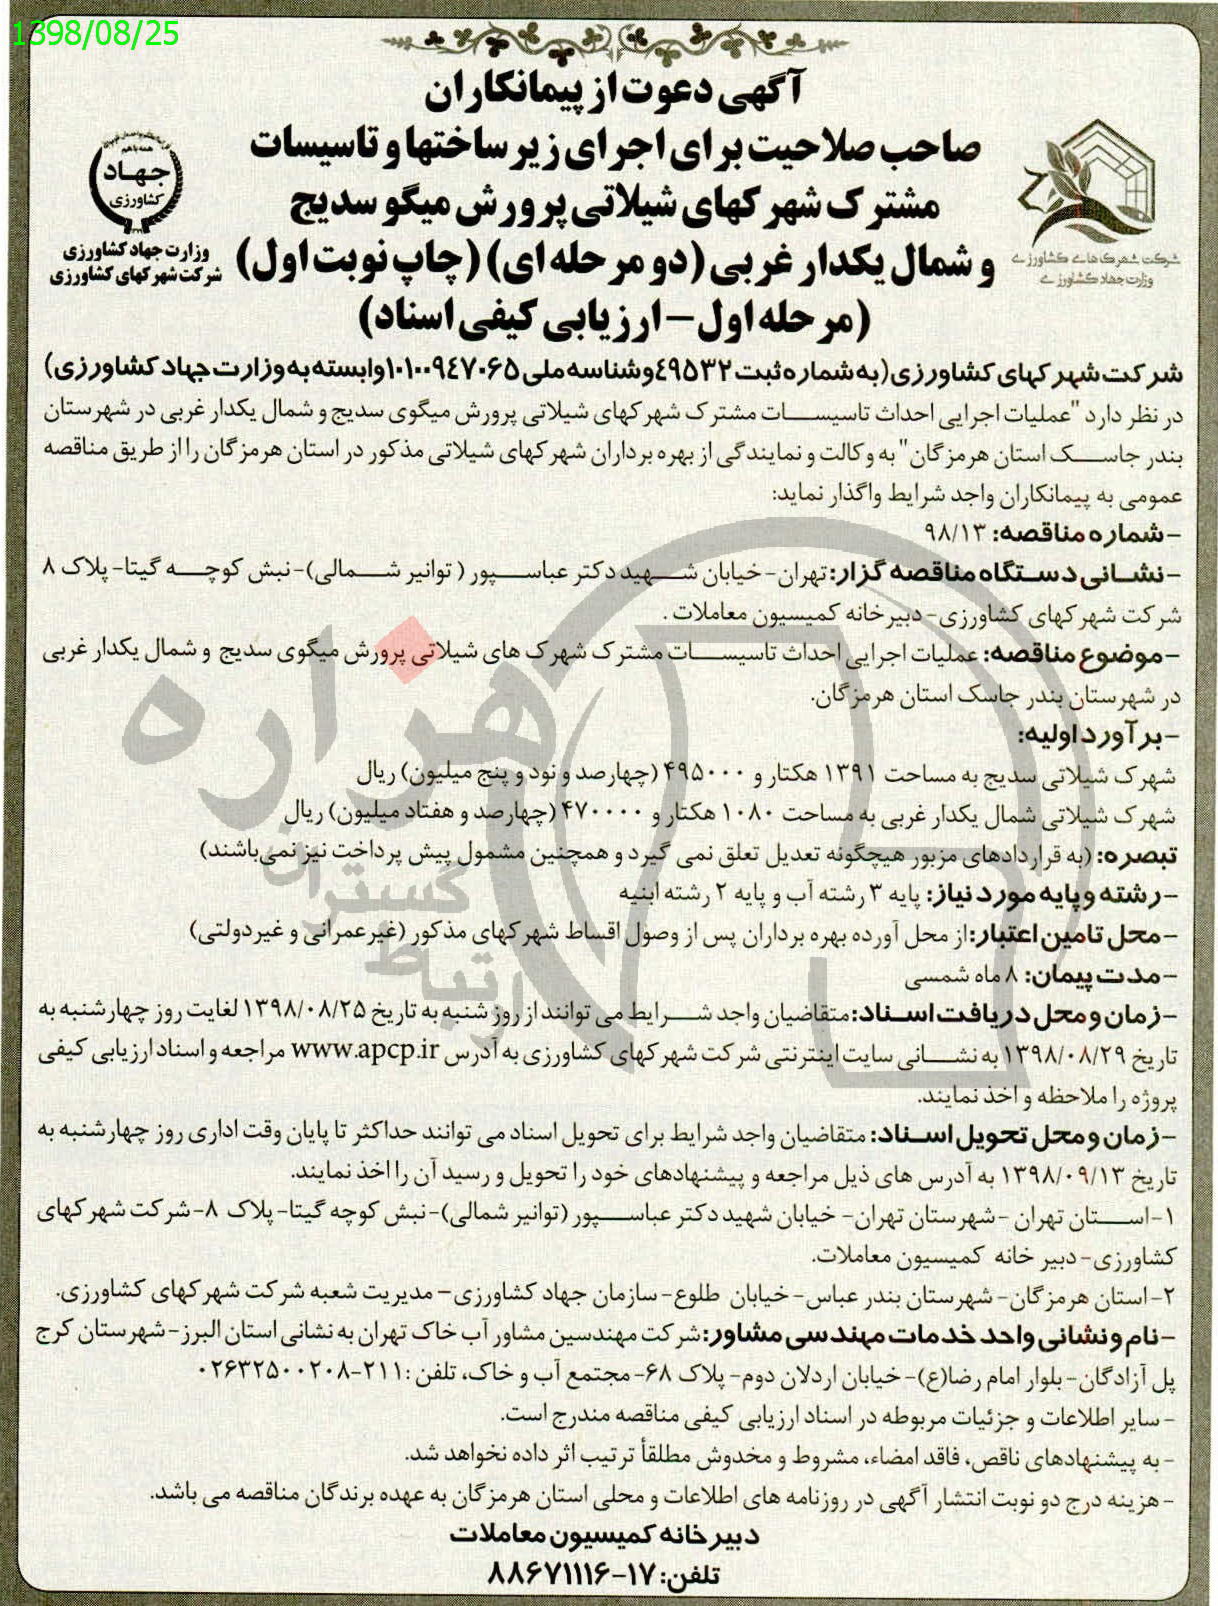 1398/08/25
آگهی دعوت از پیمانکاران
صاحب صلاحیت برای اجرای زیرساختها و تاسیسات
مشترک شهرکهای شیلاتی پرورش میگو سدیج
و شمال یکدار غربی (دو مرحله ای) (چاپ نوبت اول)
(مرحله اول - ارزیابی کیفی اسناد)
همه با هم
جهاد
کشاورزی
وزارت جهاد کشاورزی
شرکت شهرکهای کشاورزی
شرکت شهرک های کشاورزی
وزارت جهاد کشاورزی
شرکت شهرکهای کشاورزی (به شماره ثبت ۴۹۵۳۲ و شناسه ملی ۱۰۱۰۰۹۴۷۰۶۵ وابسته به وزارت جهاد کشاورزی)
در نظر دارد "عملیات اجرایی احداث تاسیسات مشترک شهرکهای شیلاتی پرورش میگوی سدیج و شمال یکدار غربی در شهرستان
بندر جاسک استان هرمزگان" به وکالت و نمایندگی از بهره برداران شهرکهای شیلاتی مذکور در استان هرمزگان را از طریق مناقصه
عمومی به پیمانکاران واجد شرایط واگذار نماید:
-شماره مناقصه: ۹۸/۱۳
-نشانی دستگاه مناقصه گزار: تهران- خیابان شهید دکتر عباسپور ( توانیر شمالی)-نبش کوچه گیتا- پلاک ۸
شرکت شهرکهای کشاورزی- دبیرخانه کمیسیون معاملات .
-موضوع مناقصه: عملیات اجرایی احداث تاسیسات مشترک شهرک های شیلاتی پرورش میگوی سدیج و شمال یکدار غربی
در شهرستان بندر جاسک استان هرمزگان.
-برآورد اولیه:
شهرک شیلاتی سدیج به مساحت ۱۳۹۱ هکتار و ۴۹۵۰۰۰ (چهارصد و نود و پنج میلیون) ریال
شهرک شیلاتی شمال یکدار غربی به مساحت ۱۰۸۰ هکتار و ۴۷۰۰۰۰ (چهارصد و هفتاد میلیون) ریال
تبصره: (به قراردادهای مزبور هیچگونه تعدیل تعلق نمی گیرد و همچنین مشمول پیش پرداخت نیز نمی‌باشند)
-رشته و پایه مورد نیاز: پایه ۳ رشته آب و پایه ۲ رشته ابنیه
-محل تامین اعتبار: از محل آورده بهره برداران پس از وصول اقساط شهرکهای مذکور (غیرعمرانی و غیردولتی)
-مدت پیمان: ۸ ماه شمسی
-زمان و محل دریافت اسناد: متقاضیان واجد شرایط می توانند از روز شنبه به تاریخ ۱۳۹۸/۰۸/۲۵ لغایت روز چهارشنبه به
تاریخ ۱۳۹۸/۰۸/۲۹ به نشانی سایت اینترنتی شرکت شهرکهای کشاورزی به آدرس www.apcp.ir مراجعه و اسناد ارزیابی کیفی
پروژه را ملاحظه و اخذ نمایند.
-زمان و محل تحویل اسناد: متقاضیان واجد شرایط برای تحویل اسناد می توانند حداکثر تا پایان وقت اداری روز چهارشنبه به
تاریخ ۱۳۹۸/۰۹/۱۳ به آدرس های ذیل مراجعه و پیشنهادهای خود را تحویل و رسید آن را اخذ نمایند.
۱-استان تهران -شهرستان تهران- خیابان شهید دکتر عباسپور (توانیر شمالی)-نبش کوچه گیتا-پلاک ۸-شرکت شهرکهای
کشاورزی- دبیر خانه کمیسیون معاملات.
۲-استان هرمزگان- شهرستان بندر عباس- خیابان طلوع- سازمان جهاد کشاورزی- مدیریت شعبه شرکت شهرکهای کشاورزی.
-نام و نشانی واحد خدمات مهندسی مشاور: شرکت مهندسین مشاور آب خاک تهران به نشانی استان البرز-شهرستان کرج
پل آزادگان- بلوار امام رضا(ع)- خیابان اردلان دوم- پلاک ۶۸- مجتمع آب و خاک، تلفن: ۲۱۱-۰۲۶۳۲۵۰۰۲۰۸
- سایر اطلاعات و جزئیات مربوطه در اسناد ارزیابی کیفی مناقصه مندرج است.
- به پیشنهادهای ناقص، فاقد امضاء، مشروط و مخدوش مطلقاً ترتیب اثر داده نخواهد شد.
- هزینه درج دو نوبت انتشار آگهی در روزنامه های اطلاعات و محلی استان هرمزگان به عهده برندگان مناقصه می باشد.
دبیرخانه کمیسیون معاملات
تلفن: ۱۷-۸۸۶۷۱۱۱۶
هزاره
گستران
ارتباط